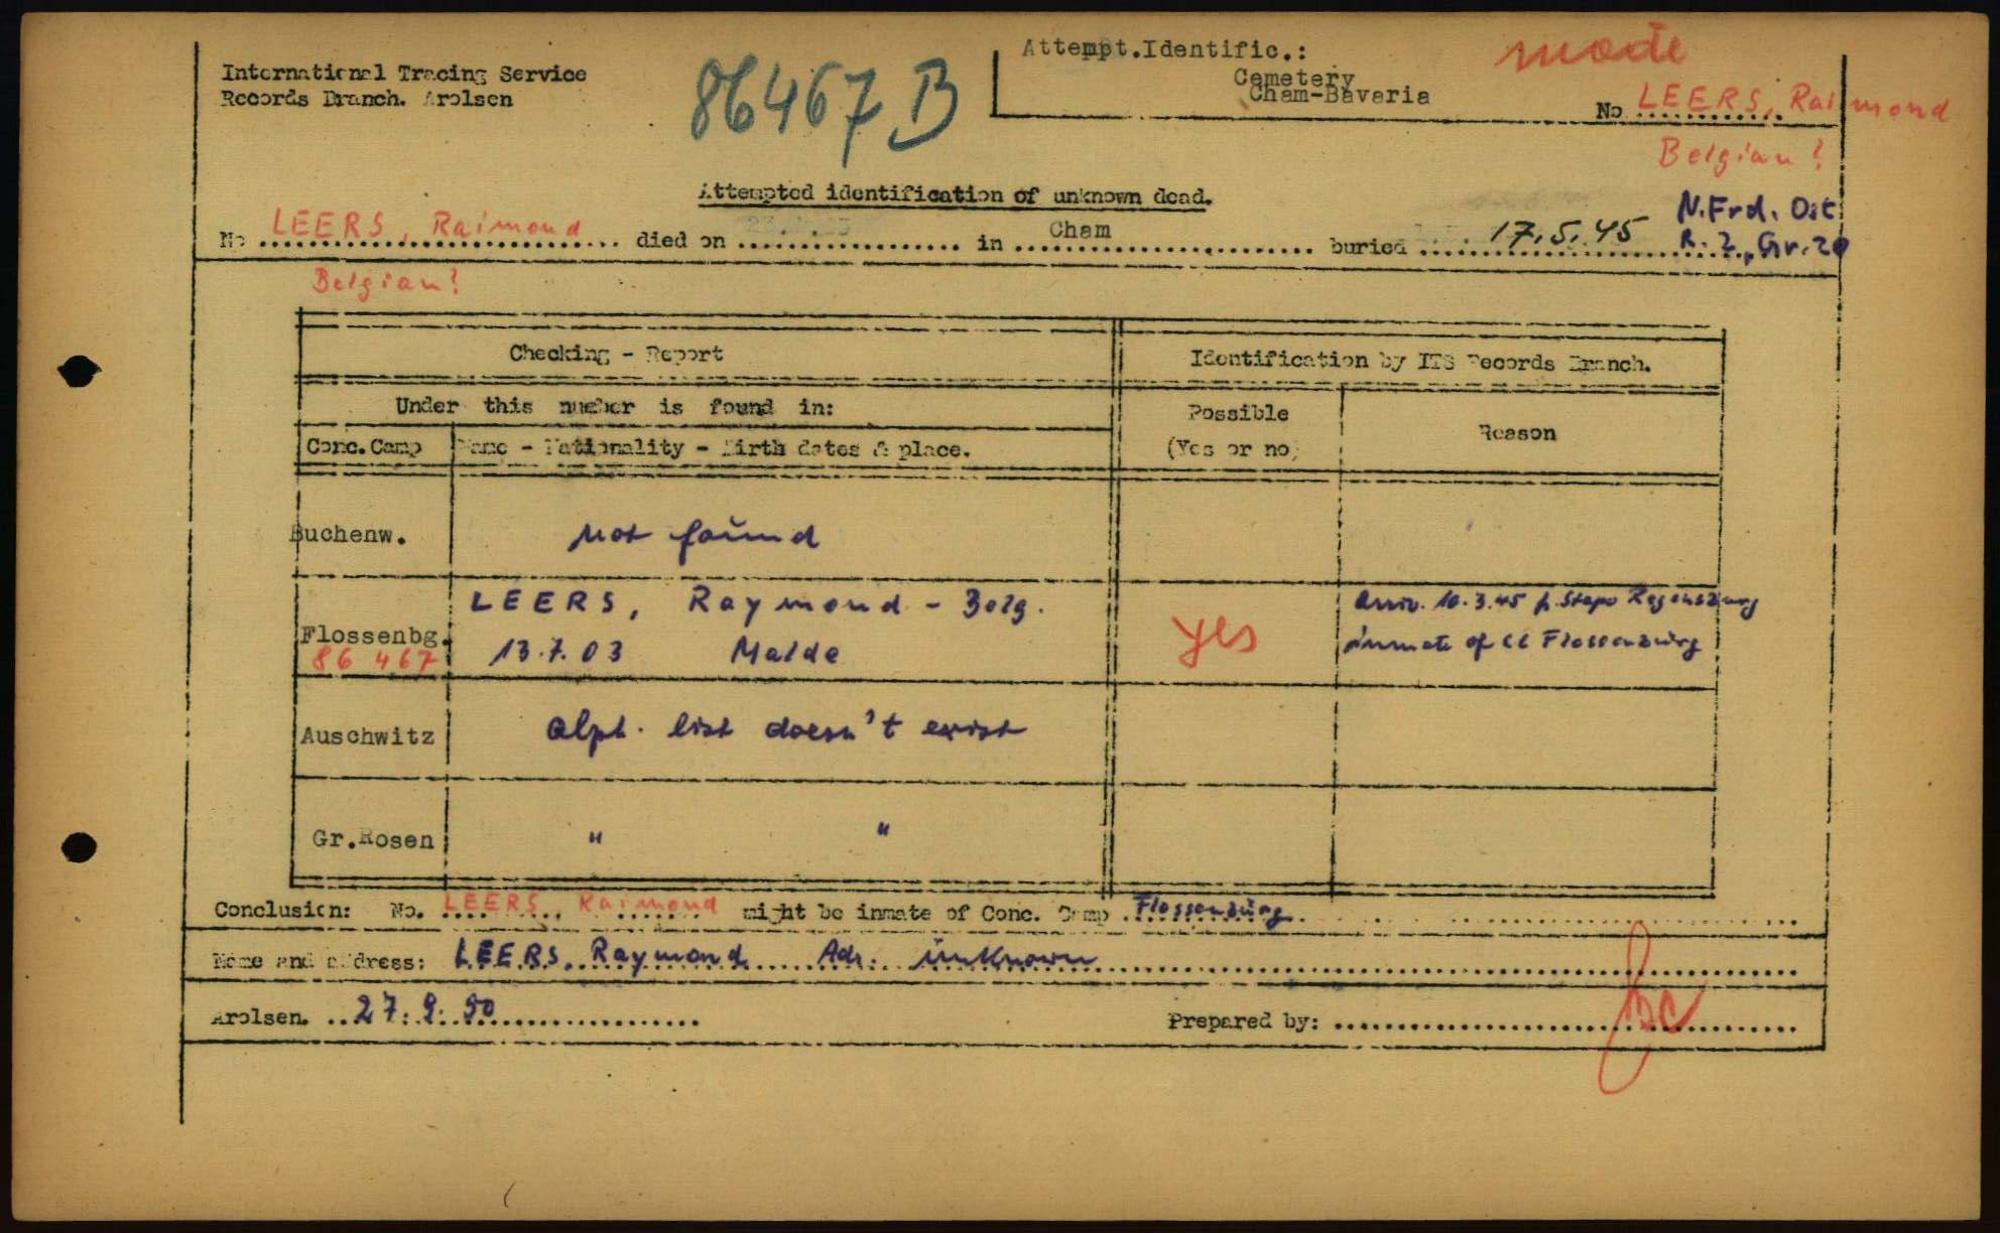 International Tracing Service
Records Branch. Arolsen
86467 B
Attempt.Identific.:
Cemetery
Cham-Bavaria
made
No LEERS, Raimond
Belgian?
Attempted identification of unknown dead.
N.Frd. Ost
R. 2, Gr. 20
No LEERS, Raimond died on in Cham buried 17.5.45
Belgian?
Checking - Report
Identification by ITS Records Branch.
Under this number is found in:
Possible
(Yes or no)
Reason
Conc.Camp
Name - Nationality - Birth dates & place.
Buchenw.
not found
Flossenbg.
86 467
LEERS, Raymond - Belg.
13.7.03 Malde
yes
Arriv. 10.3.45 f. Stapo Regensburg
inmate of CC Flossenburg
Auschwitz
alph. list doesn't exist
Gr.Rosen
" "
Conclusion: No. LEERS, Raimond might be inmate of Conc. Camp Flossenburg
Name and address: LEERS, Raymond Adr. unknown
Arolsen. 27.9.50
Prepared by: